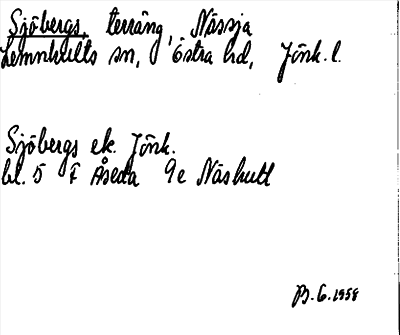 Sjöbergs, terräng, Nässja
Lemnhults sn, Östra hd, Jönk. l.
Sjöbergs ek. Jönk.
bl. 5 F Åseda 9e Näshult
B. G. 1958